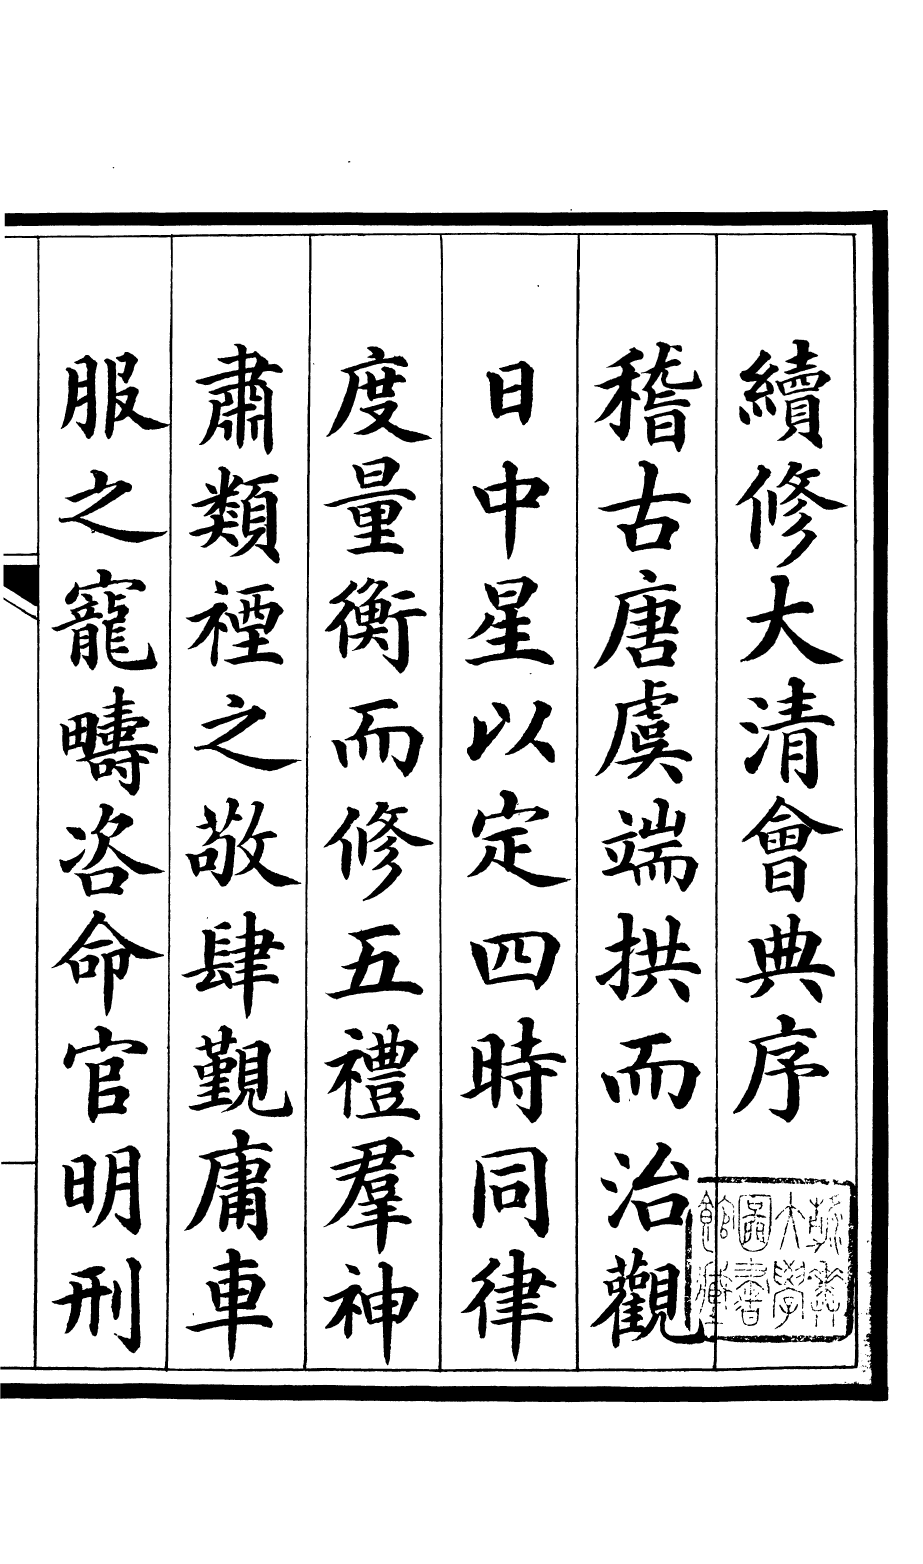 續修大清會典序
稽古唐虞端拱而治觀
日中星以定四時同律
度量衡而修五禮羣神
肅類禋之敬肆覲庸車
服之寵疇咨命官明刑
大學
圖書